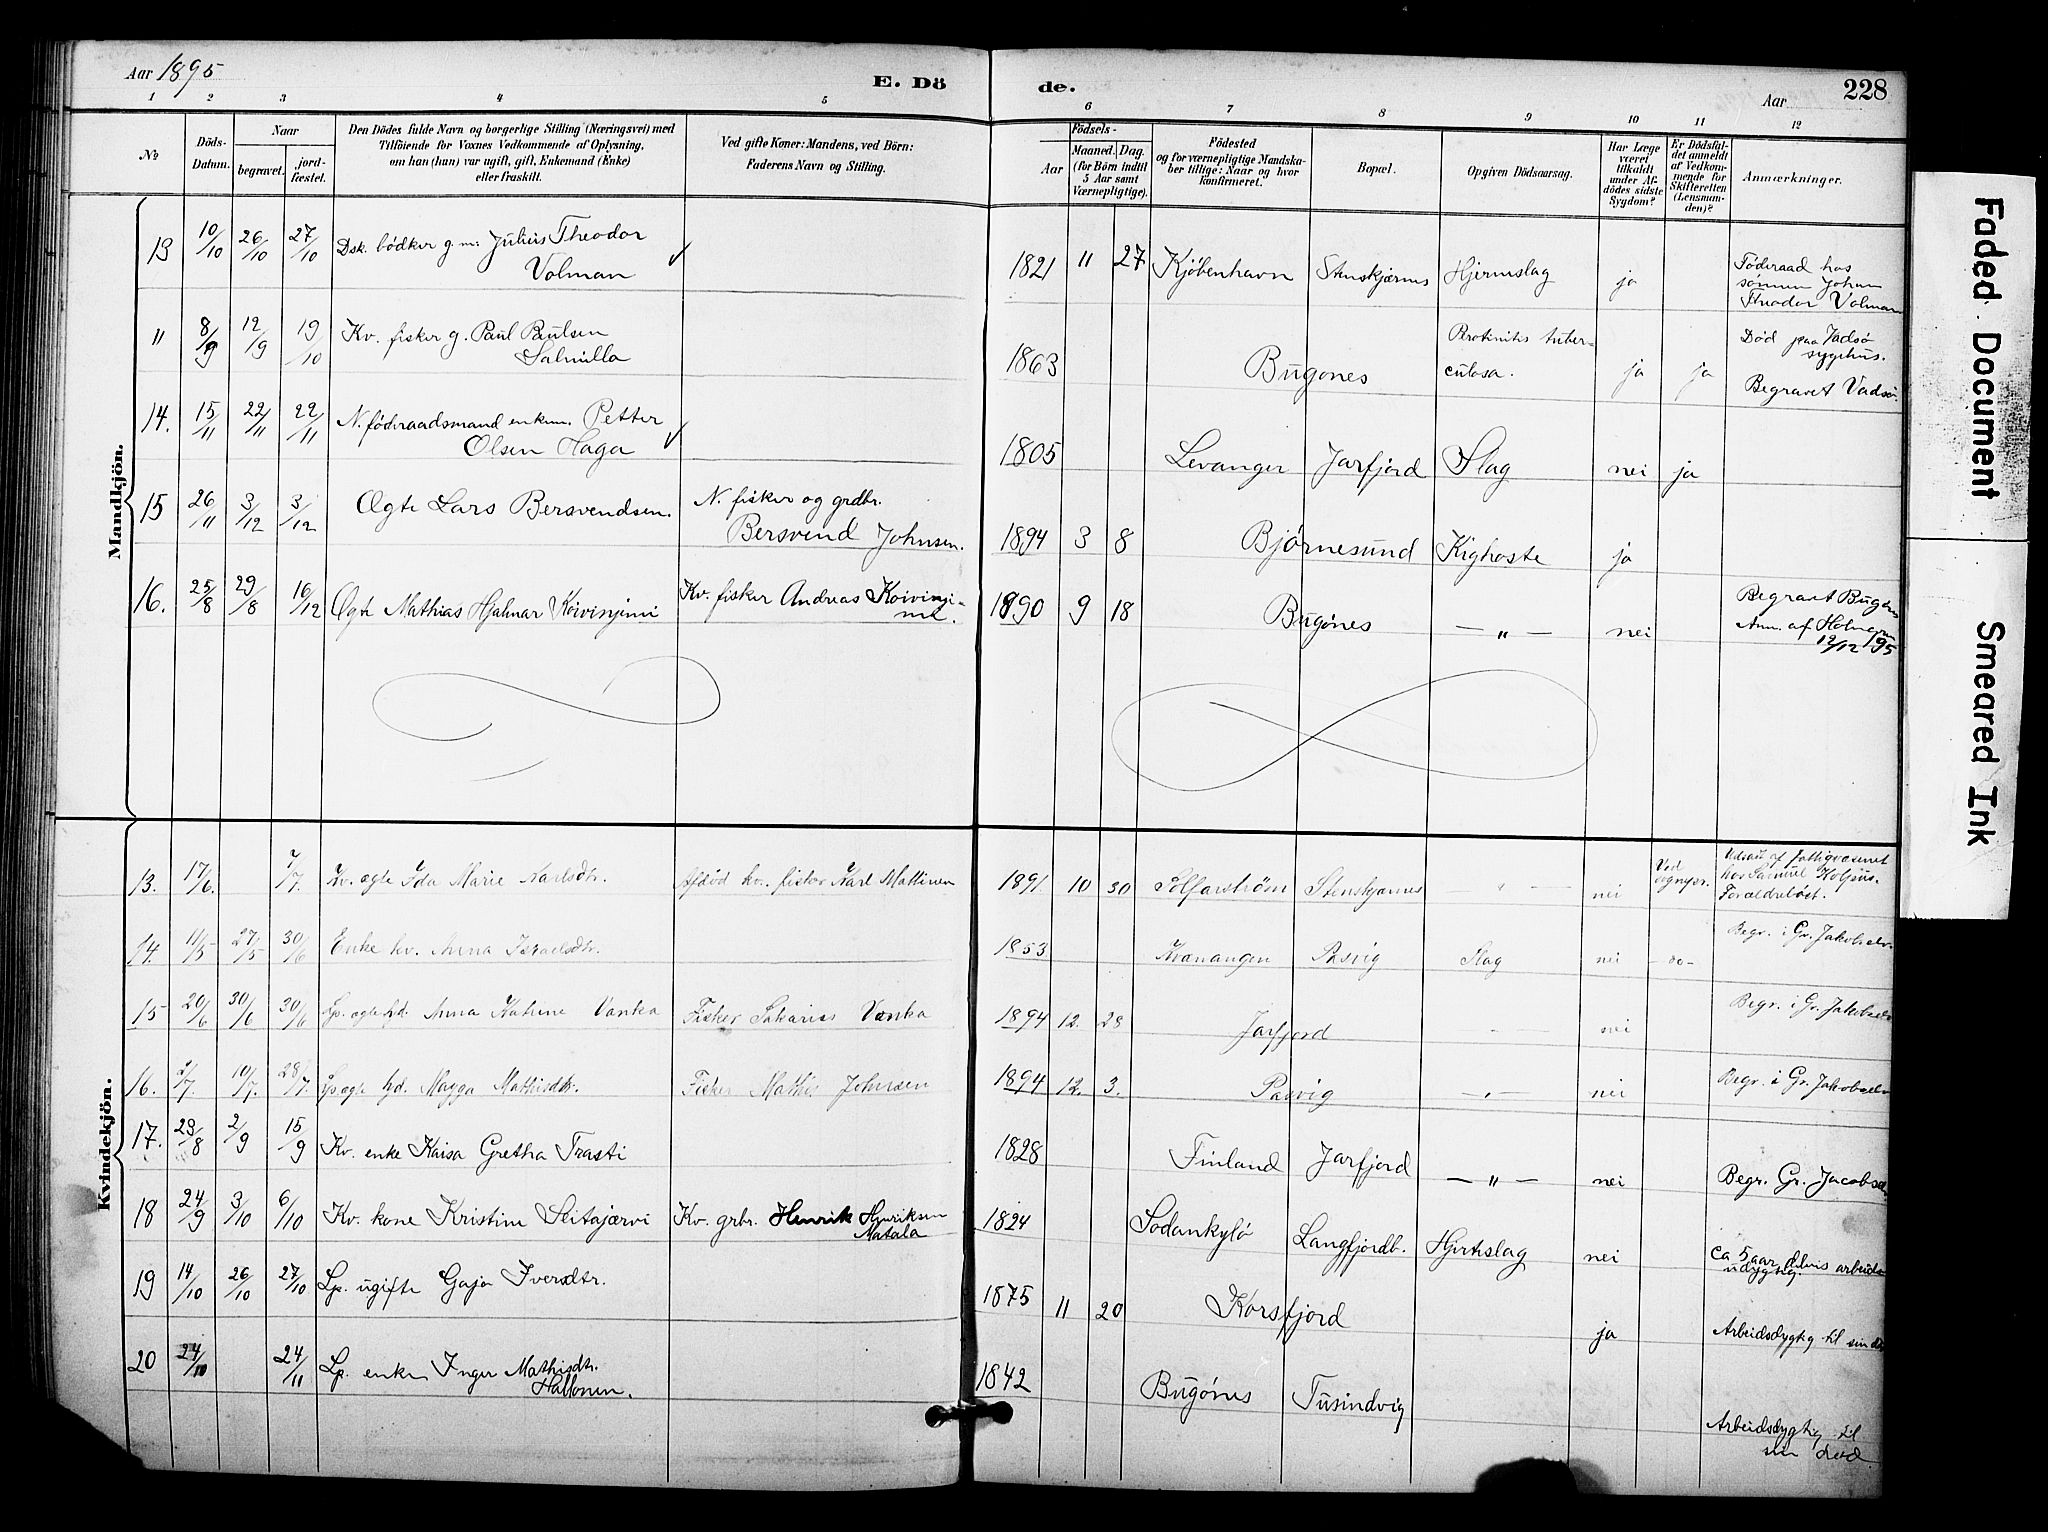 Aar 1895
E. Dö
de.
Aar
228
1 2 3 4 5 6 7 8 9 10 11 12
No
Döds-Datum.
Naar
begravet.
jord-fæstet.
Den Dödes fulde Navn og borgerlige Stilling (Næringsvei) med
Tilföiende for Voxnes Vedkommende af Oplysning,
om han (hun) var ugift, gift, Enkemand (Enke)
eller fraskilt.
Ved gifte Koner: Mandens, ved Börn:
Faderens Navn og Stilling.
Födsels-
Aar
Maaned. Dag.
(for Börn indtil
5 Aar samt
Værnepligtige).
Födested
og for værnepligtige Mandska-
ber tillige: Naar og hvor
konfirmeret.
Bopæl.
Opgiven Dödsaarsag.
Har Læge
været
tilkaldt
under Af-
dödes sidste
Sygdom?
Er Dödsfal-
det anmeldt
af Vedkom-
mende for
Skifteretten
(Lensman-
den)?
Anmærkninger.
Mandkjön.
13 10/10 26/10 27/10 Dsk. bödker g.m. Julius Theodor
Volman
1821 11 27 Kjöbenhavn Stenskjærnes Hjernslag ja
Föderaad hos
sönnen Johan
Theodor Volman
11 8/9 12/9 19/10 Kv. fisker g. Paul Paulsen
Salmilla
1863 Bugønes
Peritinites tuber-
culosa. ja ja
Död paa Vadsø
sygehus.
Begravet Vadsø.
14. 15/11 22/11 22/11 N. föderaadsmand enkem. Petter
Olsen Haga
1805 Levanger Jarfjord Slag nei ja
15 26/11 3/12 3/12 Ægte Lars Bersvendsen.
N. fisker og grdbr.
Bersvend Johnsen.
1894 3 8 Bjørnesund Kighoste ja
16. 25/8 29/8 16/12 Ægte Mathias Hjalmar Koivisniemi
Kv. fisker Andreas Koivisni-
mi.
1890 9 18 Bugønes — „ — nei
Begravet Bugønes
Anm. af Holmgren
12/12 95
Kvindekjön.
13. 17/6. 7/7. Kv. ægte Ida Marie Karlsdtr. Afdöd kv. fisker Karl Mattinen
1891. 10 30 Solfarström Stenskjærnes — „ — nei
Ved
sognepr.
Udsat af Fattigvæsenet
hos Samuel
Forældreløst.
14. 11/5 27/5 30/6 Enke kv. Anna Israelsdtr.
1853 Kvænangen Pasvig Slag nei -do-
Begr. i Gr. Jakobselv.
15 20/6 30/6 30/6 Lp. ægte fd. Anna Katrine Vanka Fisker Sakarias Vanka
1894 12. 28 Jarfjord — „ — nei
Begr. i Gr. Jakobselv
16. 2/7. 10/7. 28/7 Lp. ægte fd. Magga Mathisdtr. Fisker Mathis Johnsen
1894 12. 3. Pasvig — „ — nei
Begr. i Gr. Jakobselv
17. 23/8 2/9 15/9 Kv. enke Kaisa Gretha Trasti
1828 Finland Jarfjord — „ — nei
Begr. Gr. Jacobselv
18 24/9 3/10 6/10 Kv. kone Kristine Seitajærvi Kv. grbr. Henrik Henriksen
Matala
1824 Sodankylø Langfjordb. Hjerteslag nei
Ca 5 aar delvis arbeids
udygtig.
19 14/10 26/10 27/10 Lp. ugifte Gaja Iversdtr.
1875 11 20 Korsfjord ja
Arbeidsdygtig til sin død
20 24/10 24/11 Lp. enken Inger Mathisdtr.
Hallonen.
1842 Bugønes Tusindvig
Arbeidsdygtig til
sin død.
Faded Document
Smeared Ink